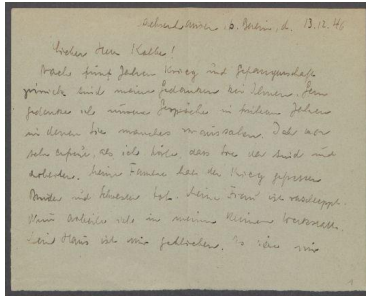 b. Berlin, d. 13.12.46
Lieber Herr Kolbe!
Nach fünf Jahren Krieg und Gefangenschaft
sind meine Gedanken bei Ihnen. Gern
gedenke ich unserer Gespräche in frühen Jahren
in denen Sie manches voraussahen. Ich war
sehr erfreut, als ich hörte, dass Sie da sind und
arbeiten. Meine Familie hat der Krieg gefressen
Bruder und Schwester tot. Meine Frau ist verschleppt.
Nun arbeite ich in meiner kleinen Werkstatt.
Mein Haus ist mir geblieben.